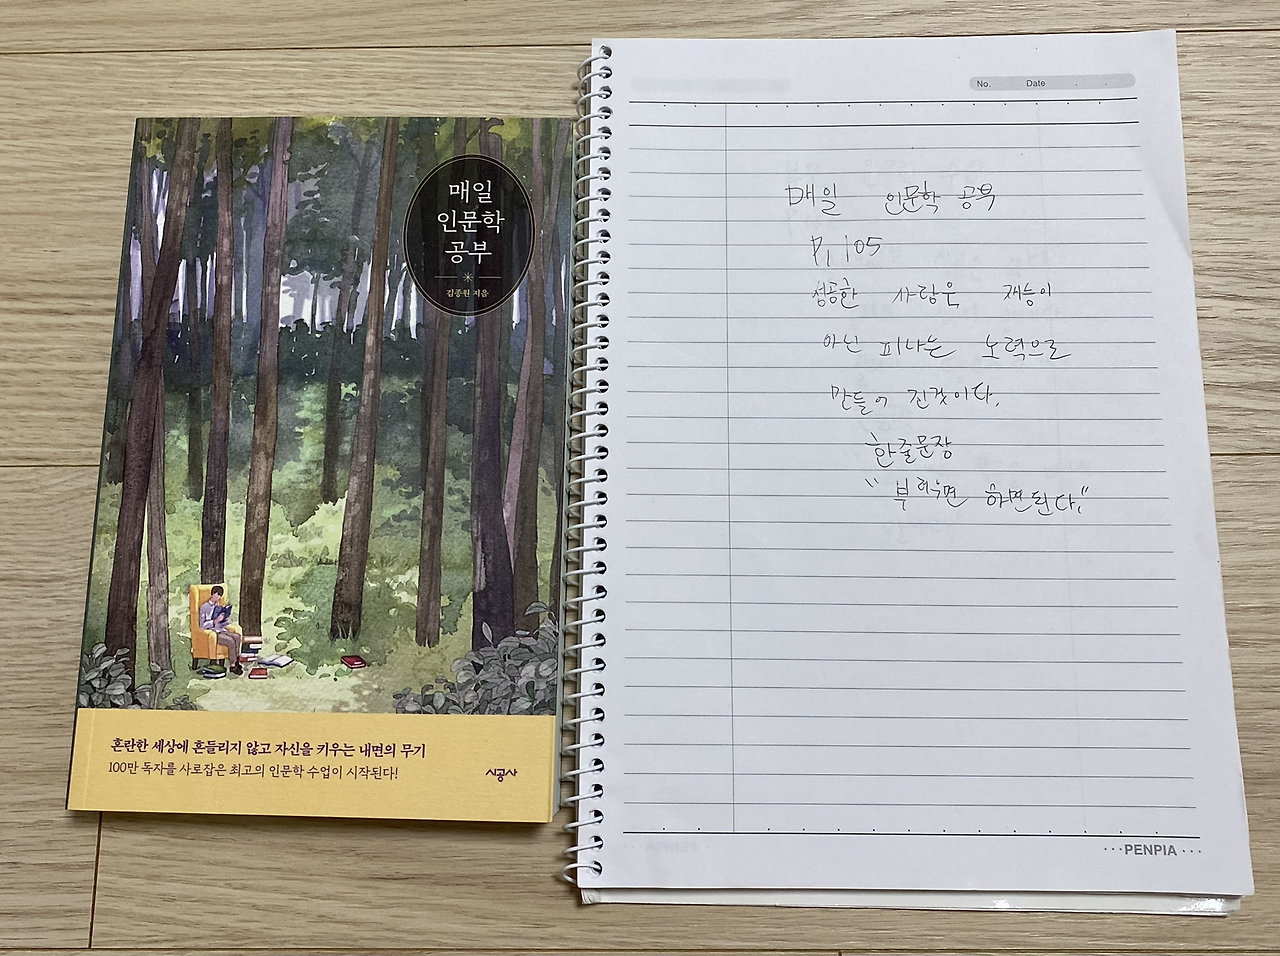 매일
인문학
공부
김종원 지음
혼란한 세상에 흔들리지 않고 자신을 키우는 내면의 무기
100만 독자를 사로잡은 최고의 인문학 수업이 시작된다!
시공사
No. Date
매일 인문학 공부
P, 105
성공한 사람은 재능이
아닌 피나는 노력으로
만들어 진것이다.
한줄문장
"부러우면 하면된다."
PENPIA